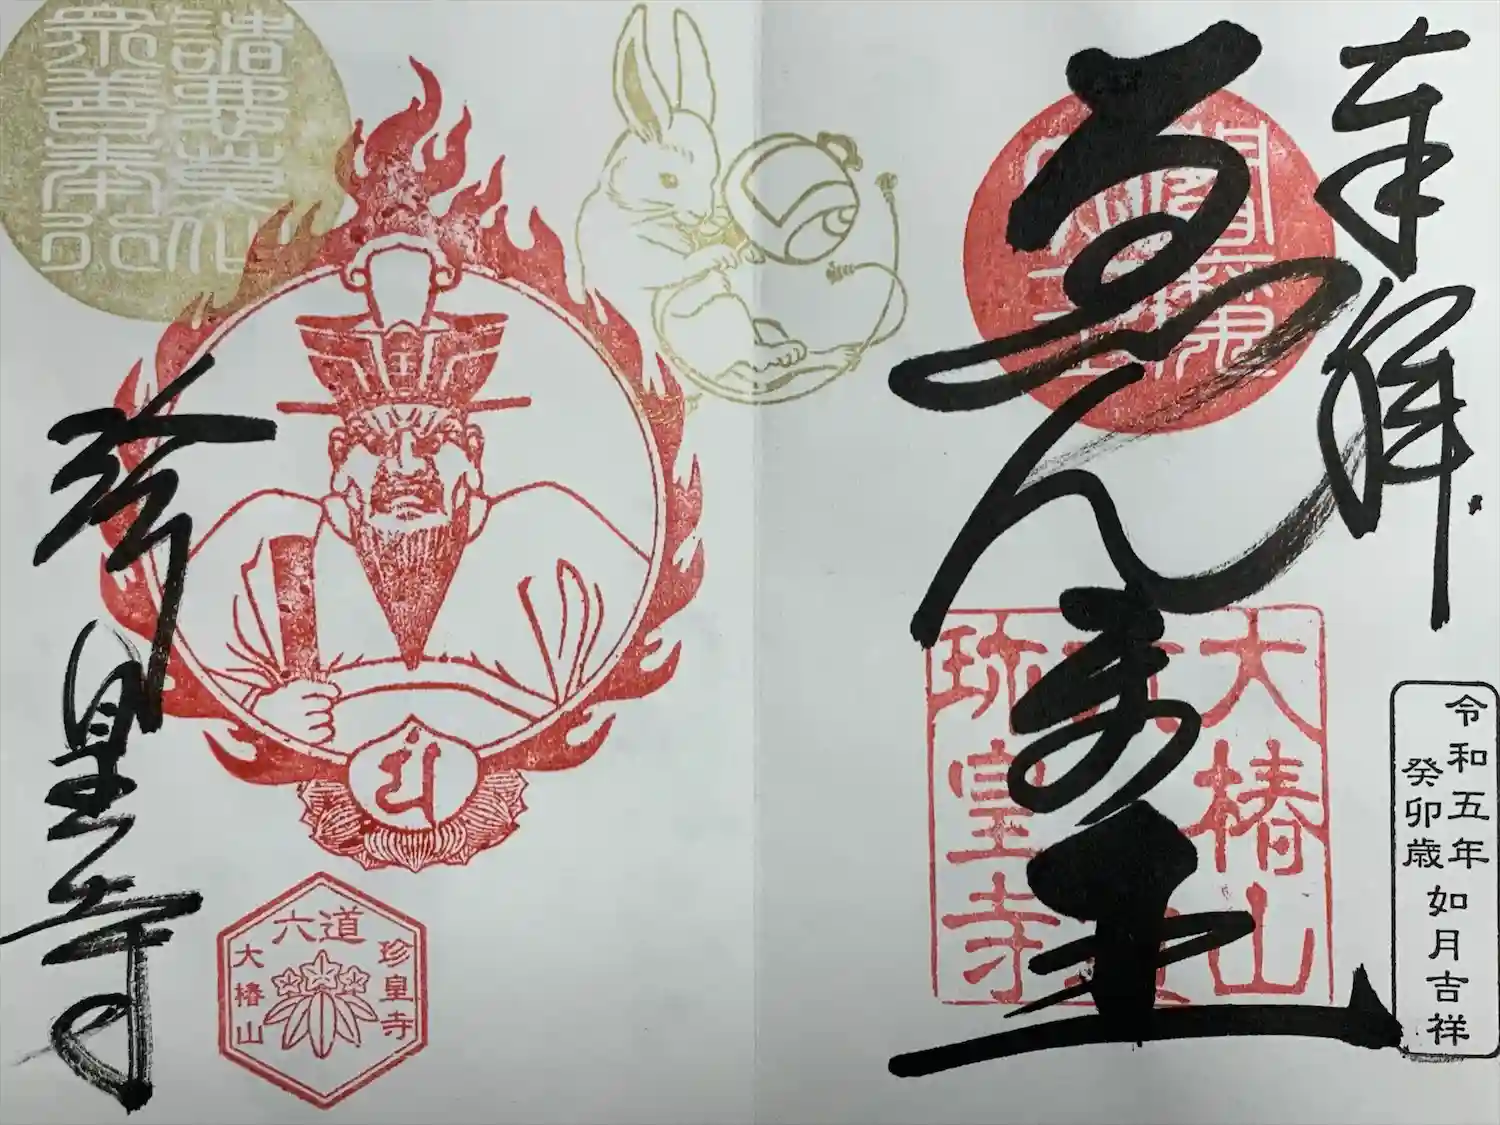 奉拝
令和五年
癸卯歳
如月吉祥
ゑんま王
大椿山
珎皇寺
諸悪莫作
衆善奉行
六道
珍皇寺
大椿山
珍皇寺